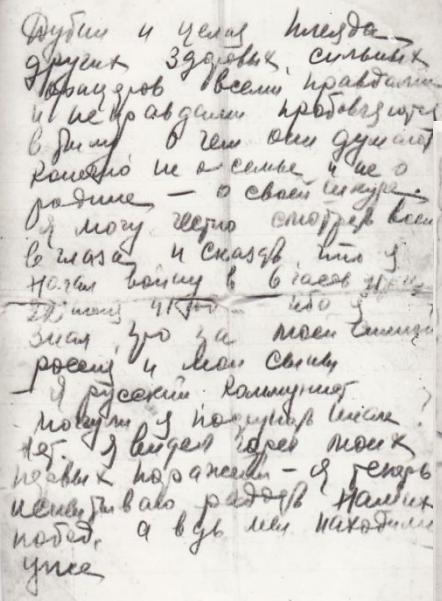 Дубин и целая плеяда
других здоровых, сильных
офицеров всеми правдами
и неправдами пробовались
в тыл о чем они думают
конечно не о семье и не о
родине — о своей шкуре.
Я могу честно смотреть всем
в глаза и сказать, что я
начал войну в 6 часов
22 июня 41 года ибо я
знал, что за моей спиной
россия и мои
— Я русский коммунист
могу ли я поступать иначе?
Нет. Я видел горе моих
первых поражений — я теперь
испытываю радость наших
побед, а ведь мы находимся
уже